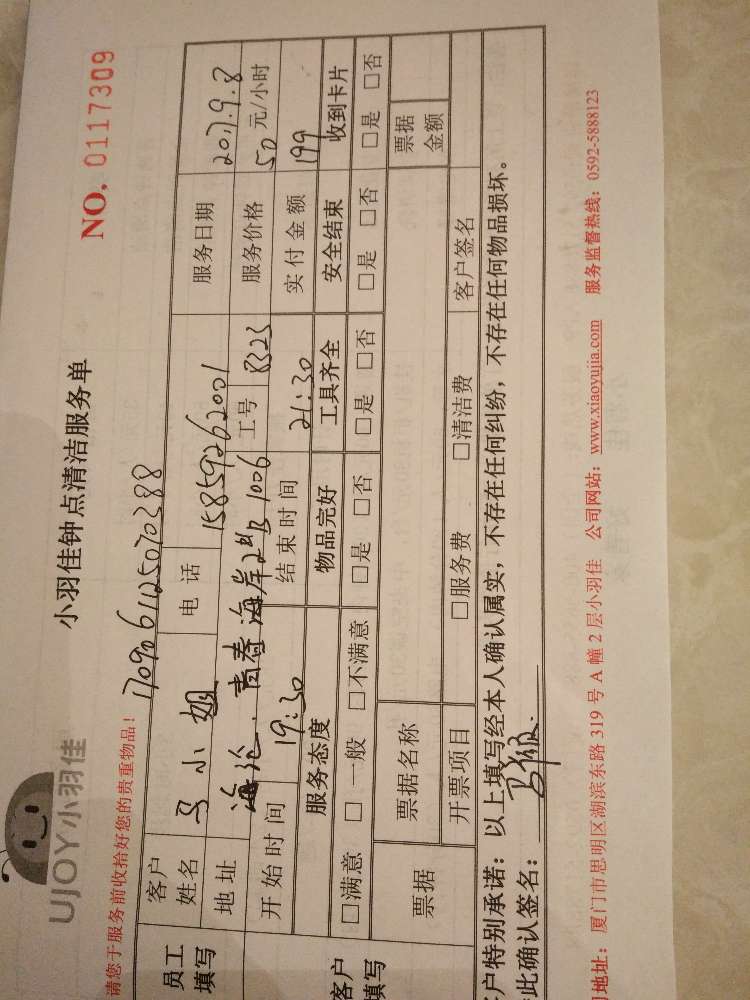 UJOY小羽佳
小羽佳钟点清洁服务单
NO. 0117309
请您于服务前收拾好您的贵重物品!
1709061125070288
员工填写
客户姓名 马小姐 电话 15859262001 服务日期 2017.9.8
地址 海沧.青春海岸2#B1006 工号 8323 服务价格 50元/小时
开始时间 19:30 结束时间 21:30 实付金额 199
客户填写
服务态度 物品完好 工具齐全 安全结束 收到卡片
□满意 □一般 □不满意 □是 □否 □是 □否 □是 □否 □是 □否
票据 票据名称 票据金额
开票项目 □服务费 □清洁费 客户签名
客户特别承诺:以上填写经本人确认属实,不存在任何纠纷,不存在任何物品损坏。
此确认签名:
地址:厦门市思明区湖滨东路319号A幢2层小羽佳 公司网站:www.xiaoyujia.com 服务监督热线:0592-5888123